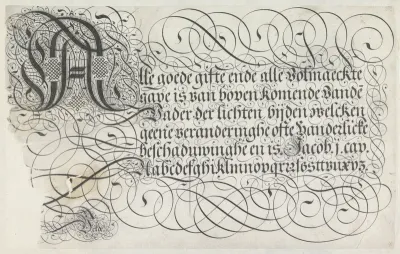 Alle goede gifte ende alle Volmaeckte
gave is van boven komende vandē
Vader der lichten, bijden welcken
geene veranderinghe ofte vanderlicke
beschaduwinghe en is. Jacob. j. cap.
Aabcdefghiklmnopqrrsssttvuxyz.